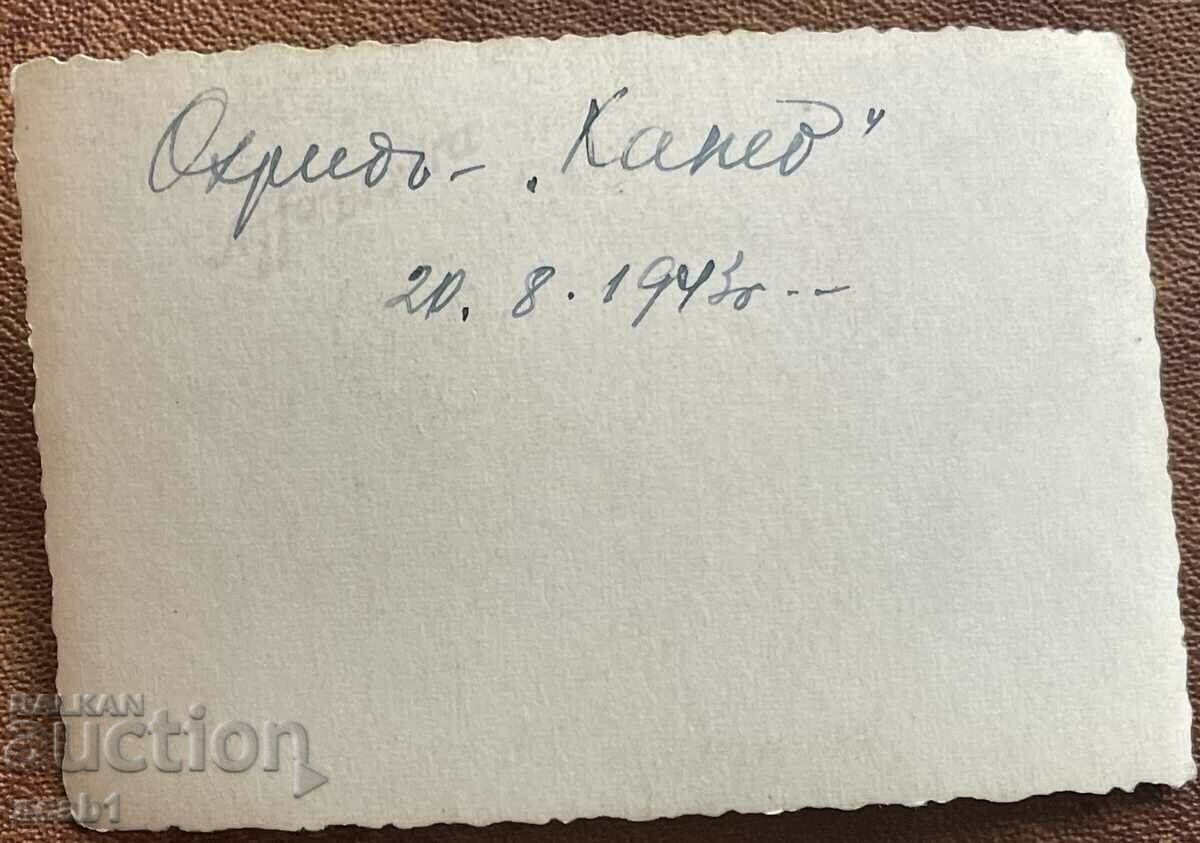 Охридъ - „Канео"
20. 8. 1943г. --
BALKAN
auction
aseb1